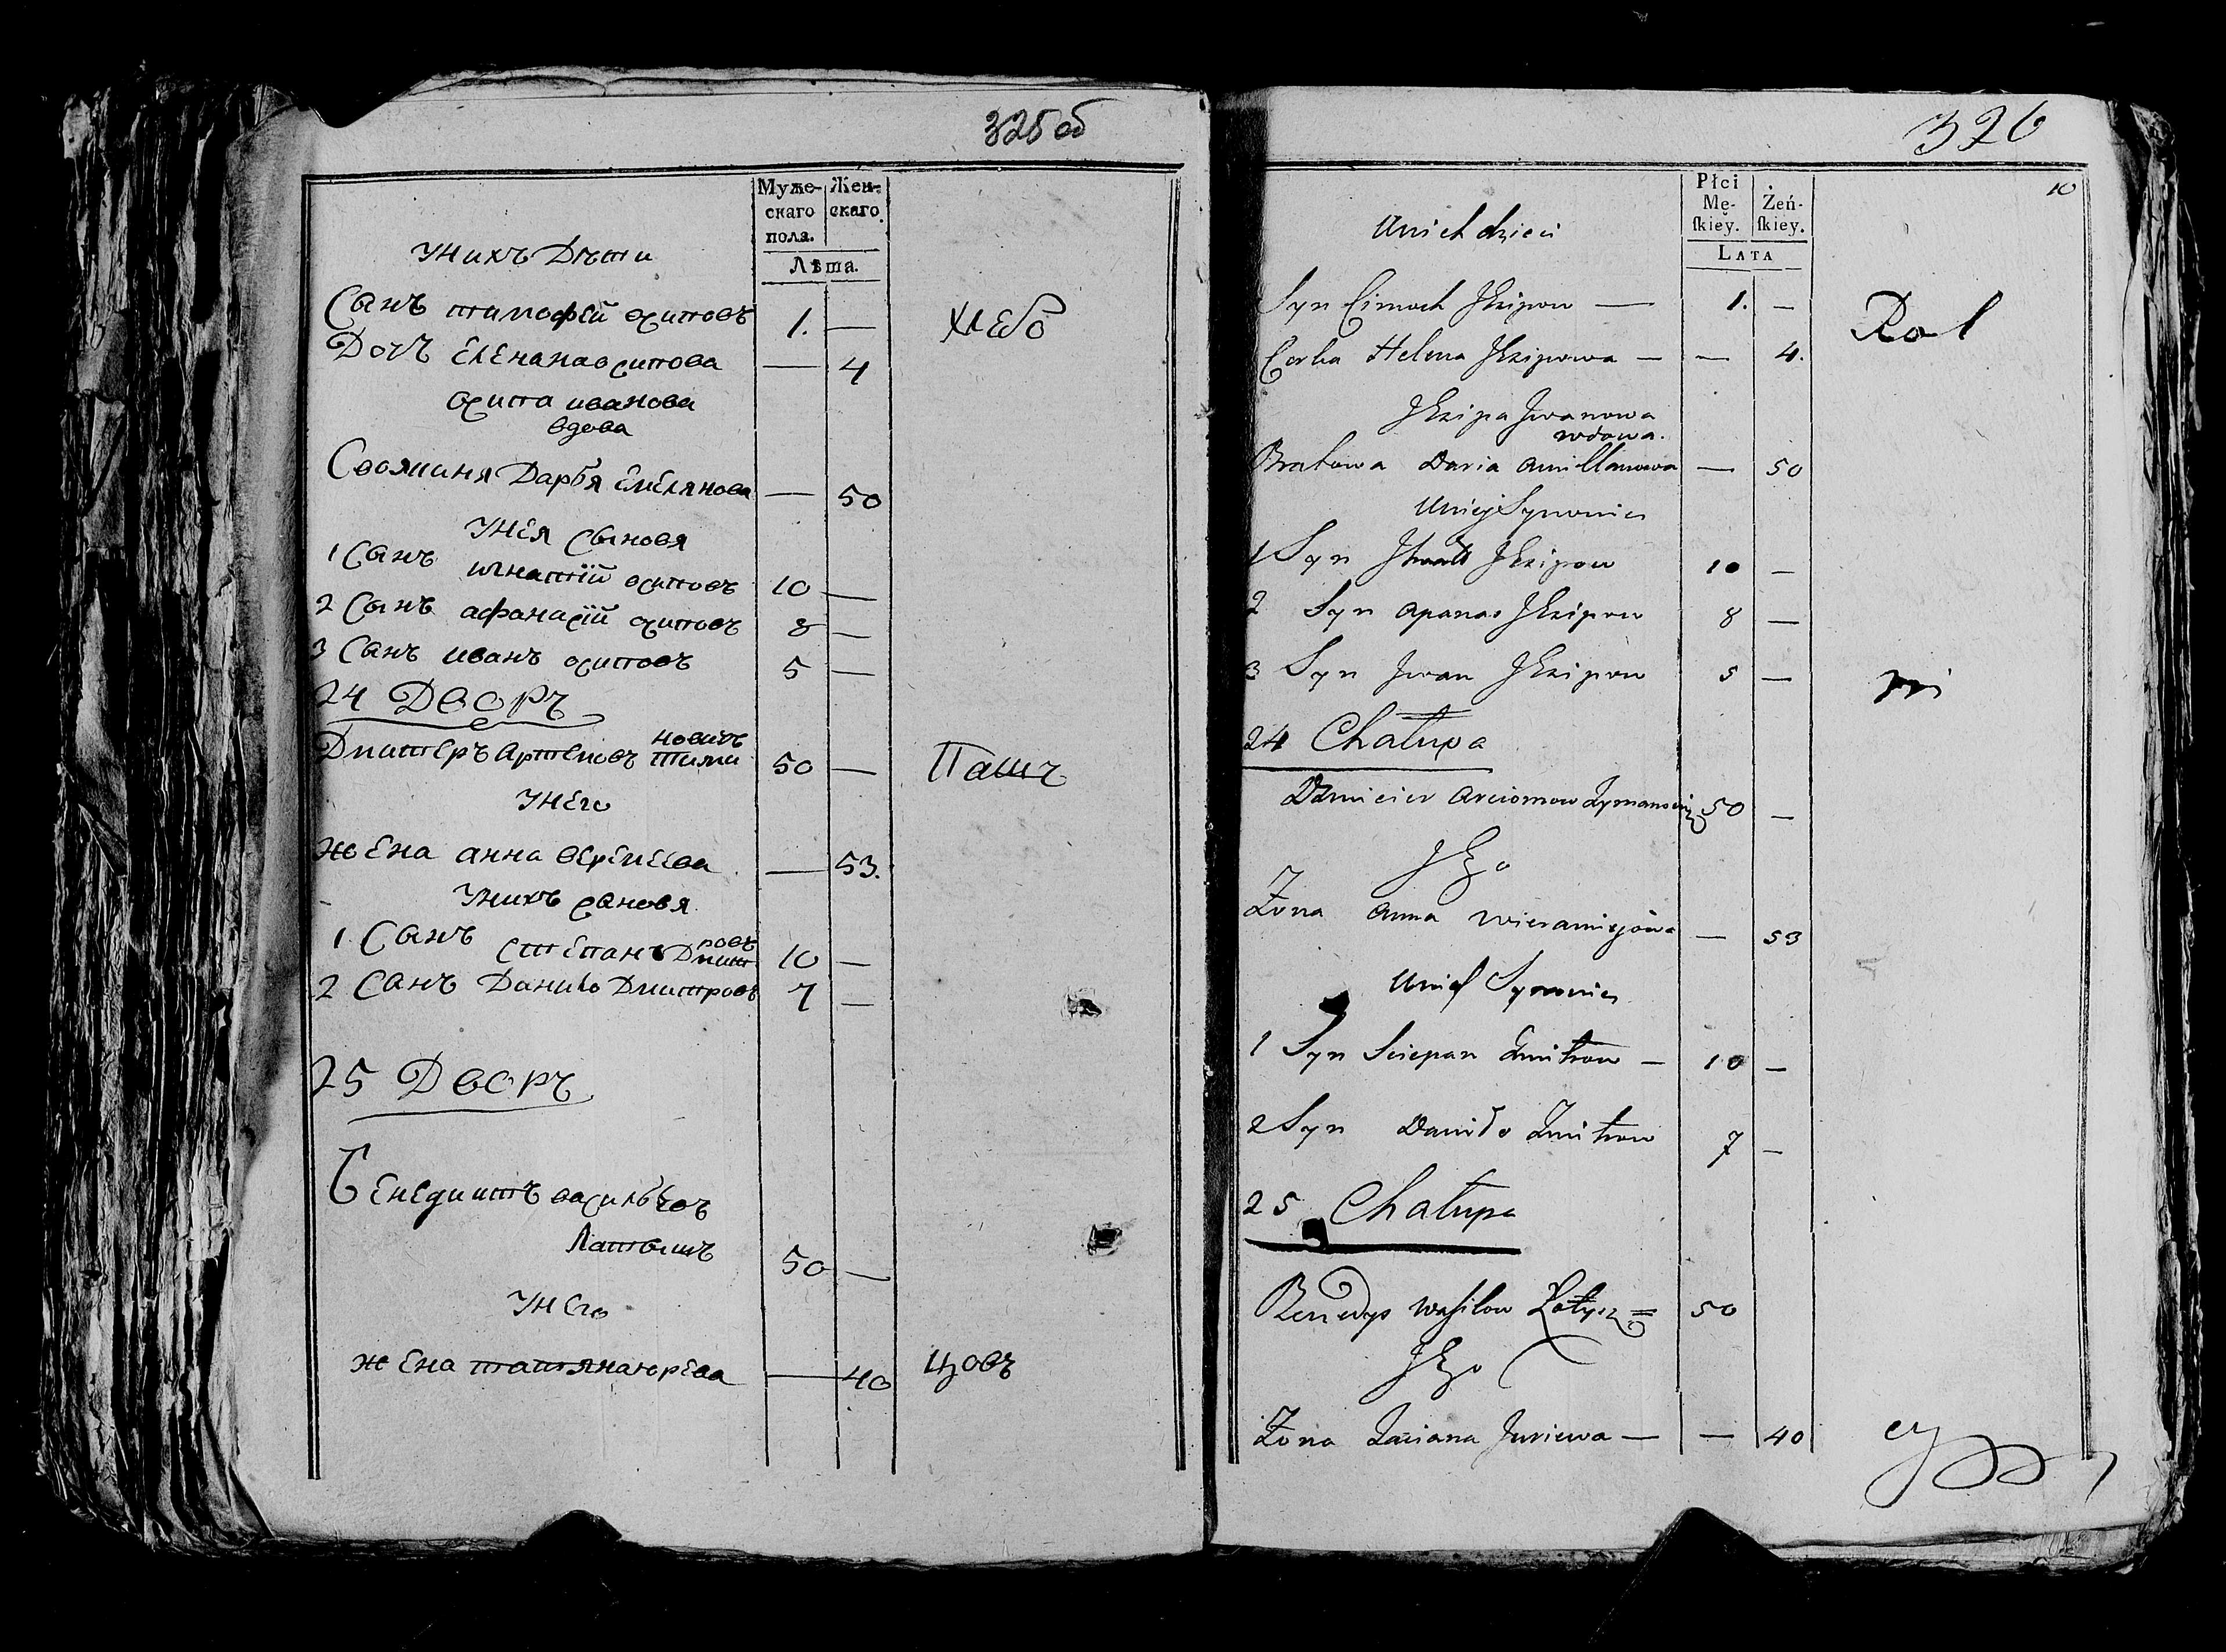 325 об
Муже-
скаго
пола.
Жен-
скаго.
Лѣта.
уних Дѣти
Сынъ тимофей осиповъ 1. —
хлебо
Дочь Елена осипова — 4
осипа иванова
вдова
Своячиня Дарья Емелянова — 50
унея сыновя
1 Сынъ игнатій осиповъ 10 —
2 Сынъ афанасій осиповъ 8 —
3 Сынъ иванъ осиповъ 5 —
24 Дворъ
Дмитеръ артемовъ тимановичъ 50 —
Пашъ
унего
жена анна веремеева — 53.
унихъ сыновя
1 Сынъ степанъ Дмитровъ 10 —
2 Сынъ Данило Дмитровъ 7 —
25 Дворъ
Бенедиктъ васильевъ
Латышъ 50 —
унего
жена татяна юрева — 40
цовъ
326
10
Płci
Mę-
ſkiey.
Żeń-
ſkiey.
LATA
Unich dzieci
Syn Cimoch Jozipow — 1. —
Rol
Corka Helena Jozipowa — — 4.
Jozipa Jwanowa
wdowa.
Bratowa Daria Amillanowa — 50
Uniey Synowie
1 Syn Jhnatt Jozipow 10 —
2 Syn Apanas Jozipow 8 —
3 Syn Jwan Jozipow 5 —
ni
24 Chałupa
Dzmicier Arciomow Zymanowicz 50 —
Jego
Żona Anna Wieramiejowa — 53
Unich Synowie
1 Syn Sciepan Zmitrow — 10 —
2 Syn Daniło Zmitrow 7 —
25 Chałupa
Benedys Wasilow Łotysz = 50
Jego
Żona Taciana Juriewa — — 40
cy